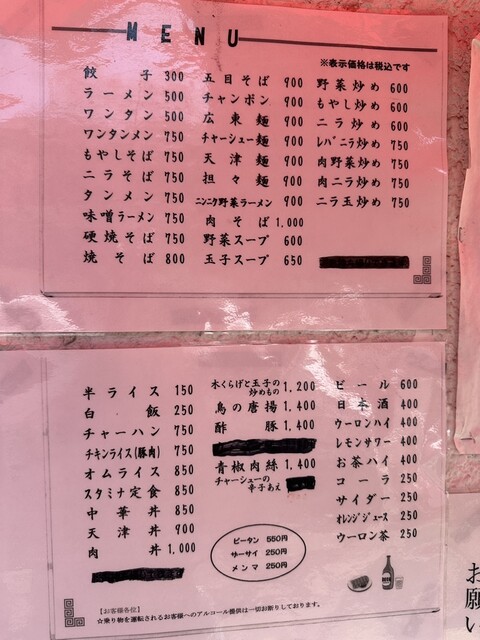 MENU
※表示価格は税込です
餃子 300
ラーメン 500
ワンタン 500
ワンタンメン 750
もやしそば 750
ニラそば 750
タンメン 750
味噌ラーメン 750
硬焼そば 750
焼そば 800
五目そば 900
チャンポン 900
広東麺 900
チャーシュー麺 900
天津麺 900
担々麺 900
ニンニク野菜ラーメン 900
肉そば 1,000
野菜スープ 600
玉子スープ 650
野菜炒め 600
もやし炒め 600
ニラ炒め 600
レバニラ炒め 750
肉野菜炒め 750
肉ニラ炒め 750
ニラ玉炒め 750
半ライス 150
白飯 250
チャーハン 750
チキンライス(豚肉) 750
オムライス 850
スタミナ定食 850
中華丼 850
天津丼 900
肉丼 1,000
木くらげと玉子の
炒めもの 1,200
鳥の唐揚 1,400
酢豚 1,400
青椒肉絲 1,400
チャーシューの
辛子あえ
ピータン 550円
ザーサイ 250円
メンマ 250円
ビール 600
日本酒 400
ウーロンハイ 400
レモンサワー 400
お茶ハイ 400
コーラ 250
サイダー 250
オレンジジュース 250
ウーロン茶 250
【お客様各位】
☆乗り物を運転されるお客様へのアルコール提供は一切お断りしております。
お
願
い